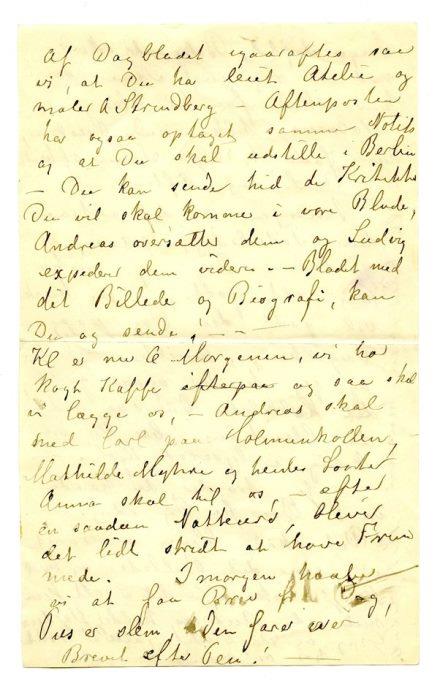 Af Dagbladet igaaraftes saa
vi, at Du har leiet Atelie og
maler A Strindberg – Aftenposten
har ogsaa optaget samme Notits
og at Du skal udstille i Berlin
– Du kan sende hid de Kritikker
Du vil skal komme i vore Blade,
Andreas oversætter dem og Ludvig
expederer dem videre. – Bladet med
dit Billede og Biografi, kan
Du og sende! – –
Kl er nu 6 Morgenen, vi har
kogt Kaffe efterpaa og saa skal
vi lægge os, – Andreas skal
med Carl paa Holmenkollen, –
Mathilde Myhre og hendes Søster
Anna skal til os, – efter
en saadan Nattevard, bliver
det lidt stridt at have Frem
mede. I morgen haaber
vi at faa Brev fra Dag,
Pus er slem, den farer over
Brevet efter Pen! –